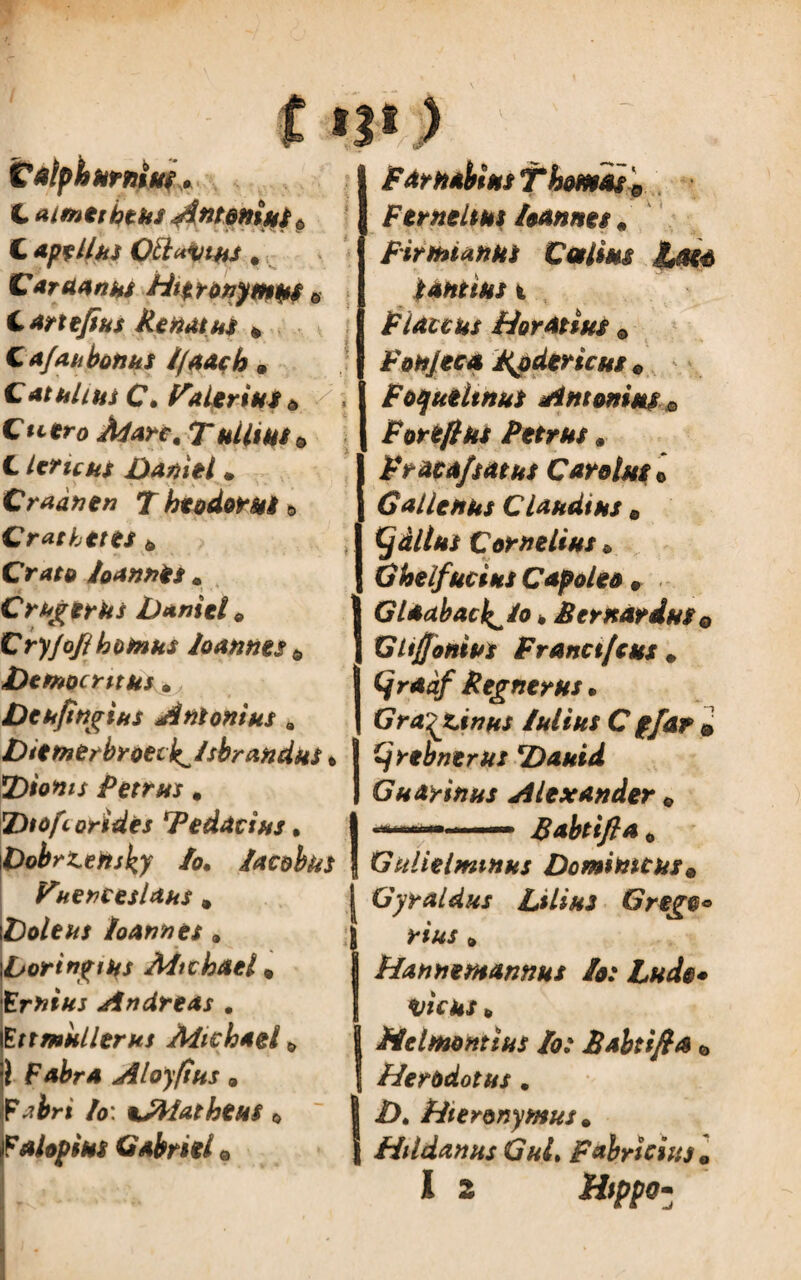 ( 131 )
Calphurnius.
Calmetheus Antonius.
Capellus Octavius.
Cardanus Hieronymus.
Cartesius Renatus.
Casaubonus Isaach.
Catullus C. Valerius.
Cicero Marc. Tullius.
Clericus Daniel.
Craanen Theodorus.
Crathetes.
Crato Joannes.
Crugerus Daniel.
Crysosthomus Joannes.
Democritus.
Deusingius Antonius.
Diemerbroeck Isbrandus.
Dionis Petrus.
Dioscorides Pedacius.
Dobrzensky Jo. Jacobus
Vuenceslaus.
Doleus Joannes.
Doringius Michael.
Ernius Andreas.
Ettmullerus Michael.
Fabra Aloysius.
Fabri Jo: Matheus.
Falopius Gabriel.
Farnabius Thomas.
Fernelius Joannes.
Firmianus Cælius Lac
tantius
Flaccus Horatius.
Fonseca Rodericus.
Foquelinus Antonius.
Forestus Petrus.
Fracassatus Carolus.
Gallenus Claudius.
Gallus Cornelius.
Ghelfucius Capoleo.
Glaabach Jo. Bernardus.
Glissonius Franciscus.
Graaf Regnerus.
Grazzinus Julius Cesar.
Grebnerus David
Guarinus Alexander.
——— Babtista.
Gulielminus Dominicus.
Gyraldus Lilius Grego-
rius.
Hannemannus Jo: Ludo-
vicus.
Helmontius Jo: Babtista.
Herodotus.
D. Hieronymus.
Hildanus Gul. Fabricius.
I 2 Hippo-